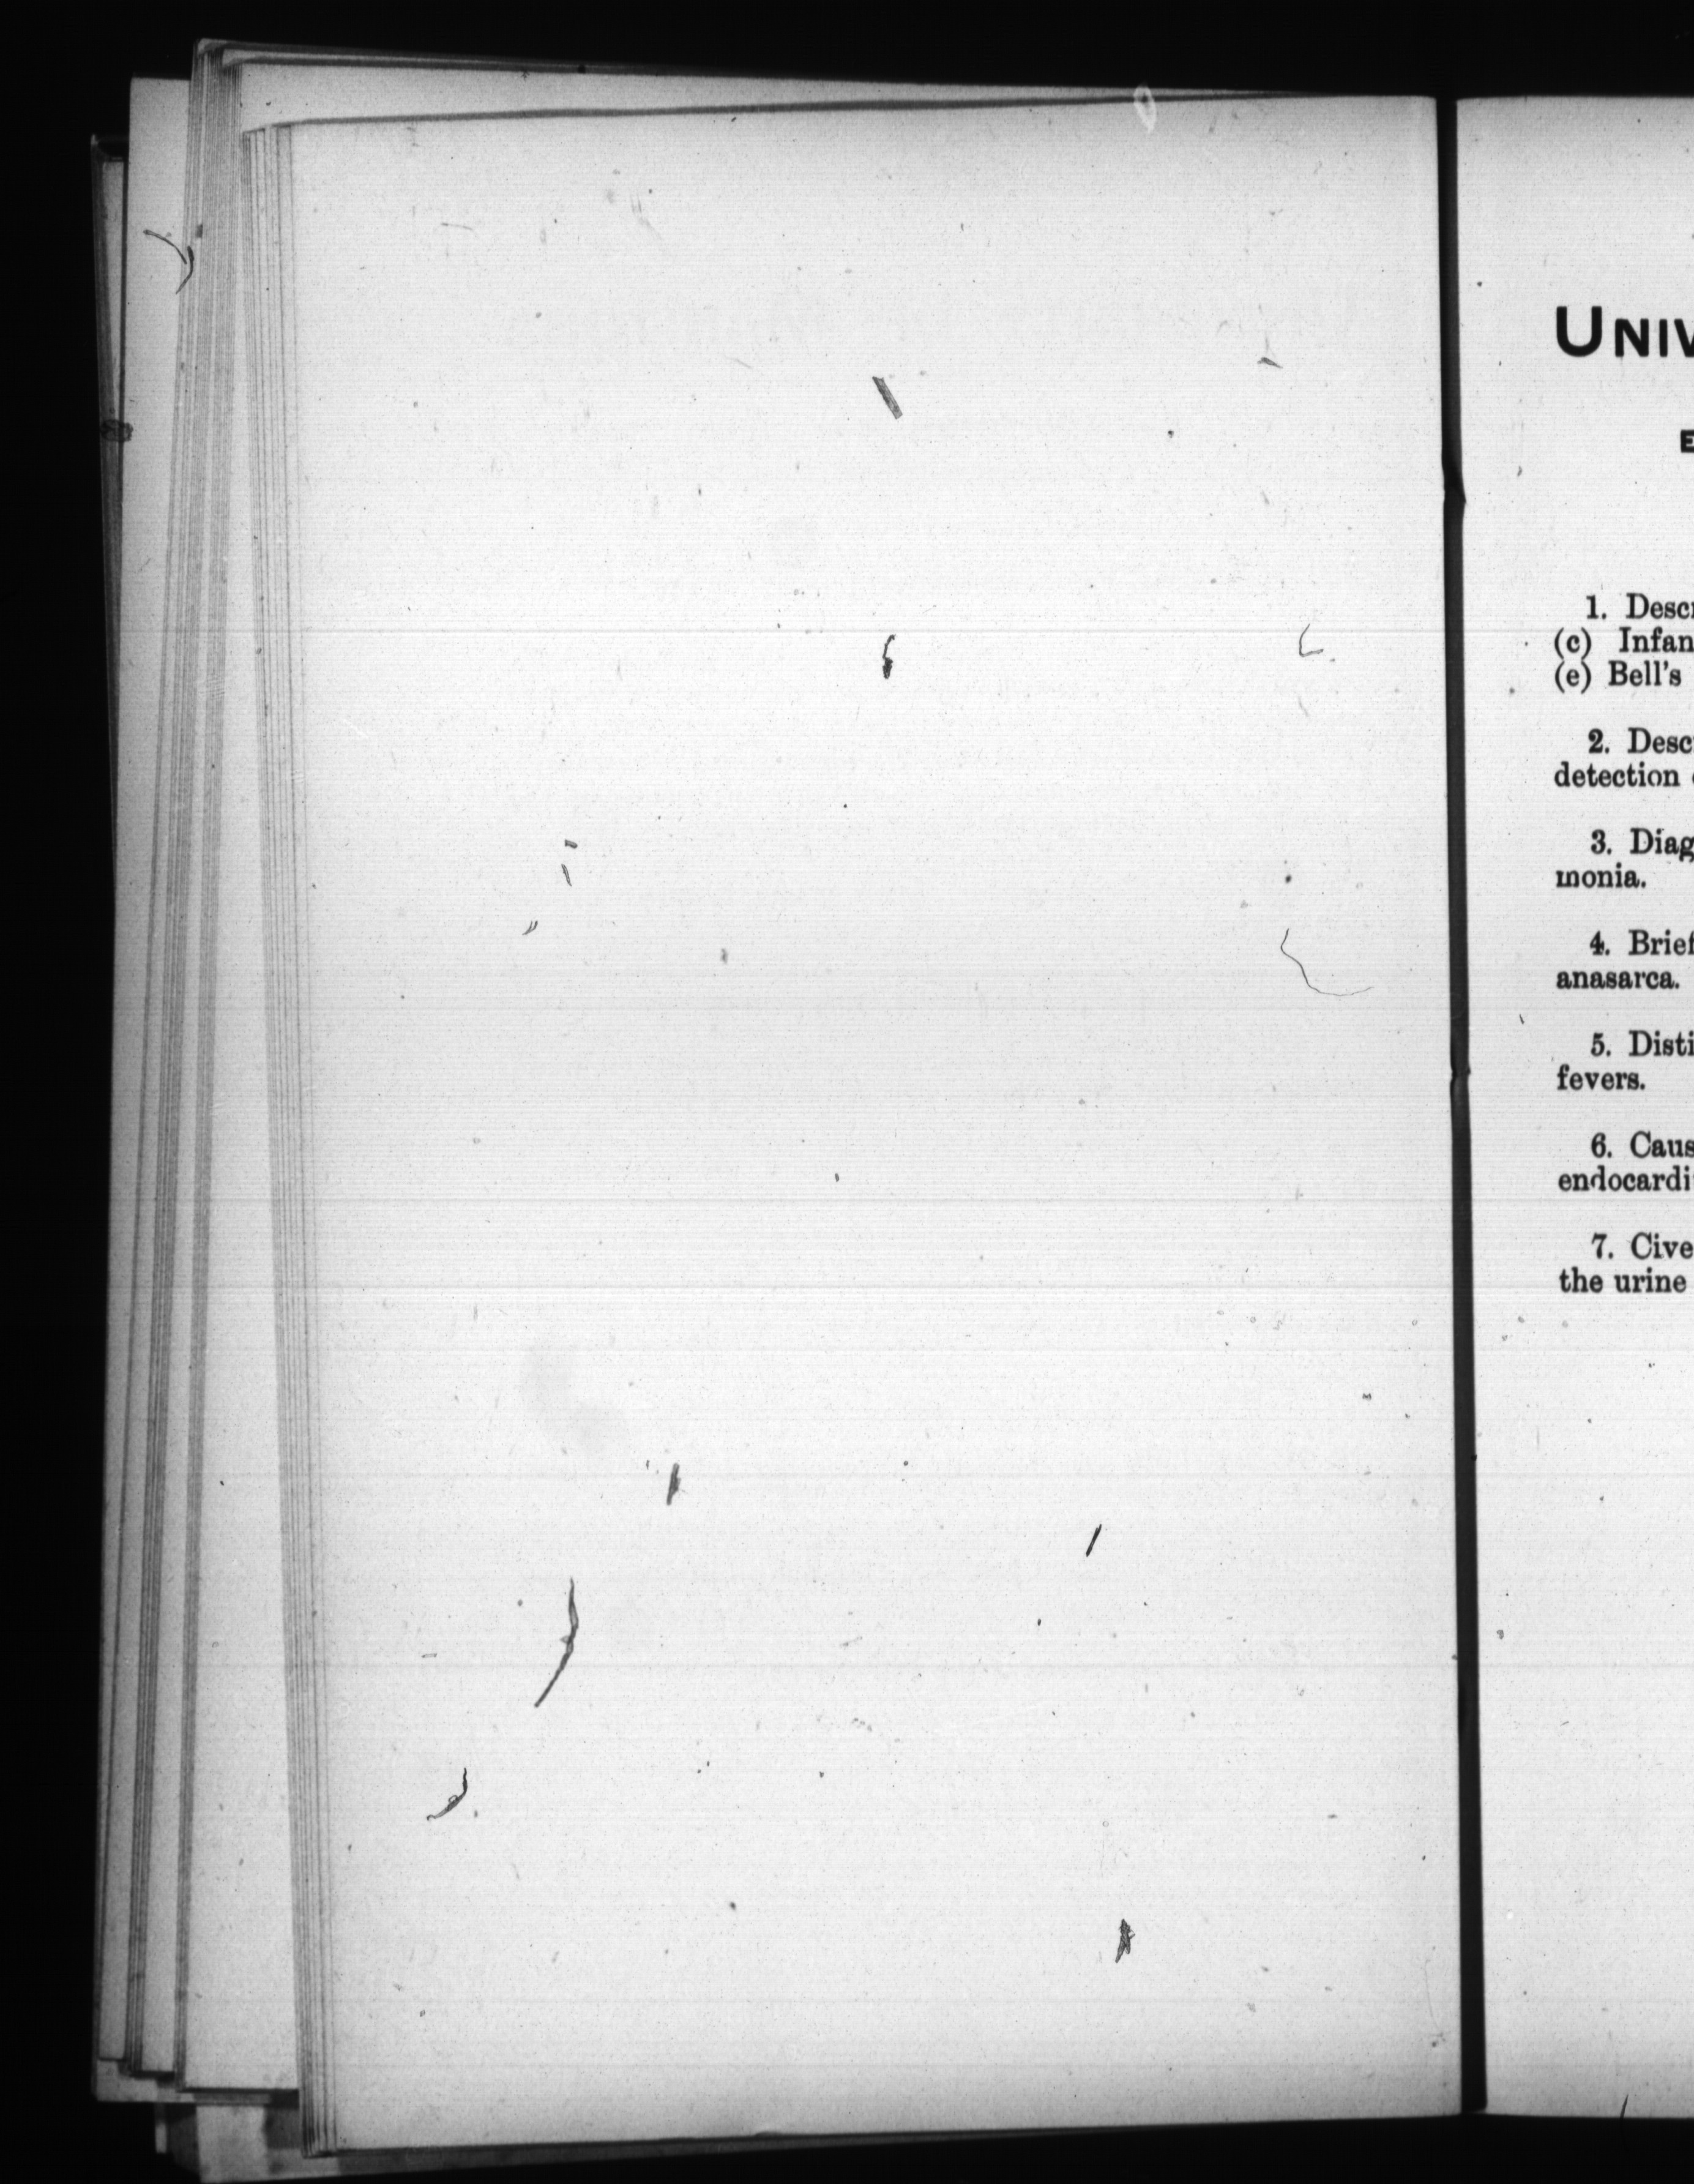 UNIV
E
1. Descr
(c) Infan
(e) Bell's
2. Descr
detection
3. Diag
monia.
4. Brief
anasarca.
5. Disti
fevers.
6. Caus
endocardi
7. Cive
the urine